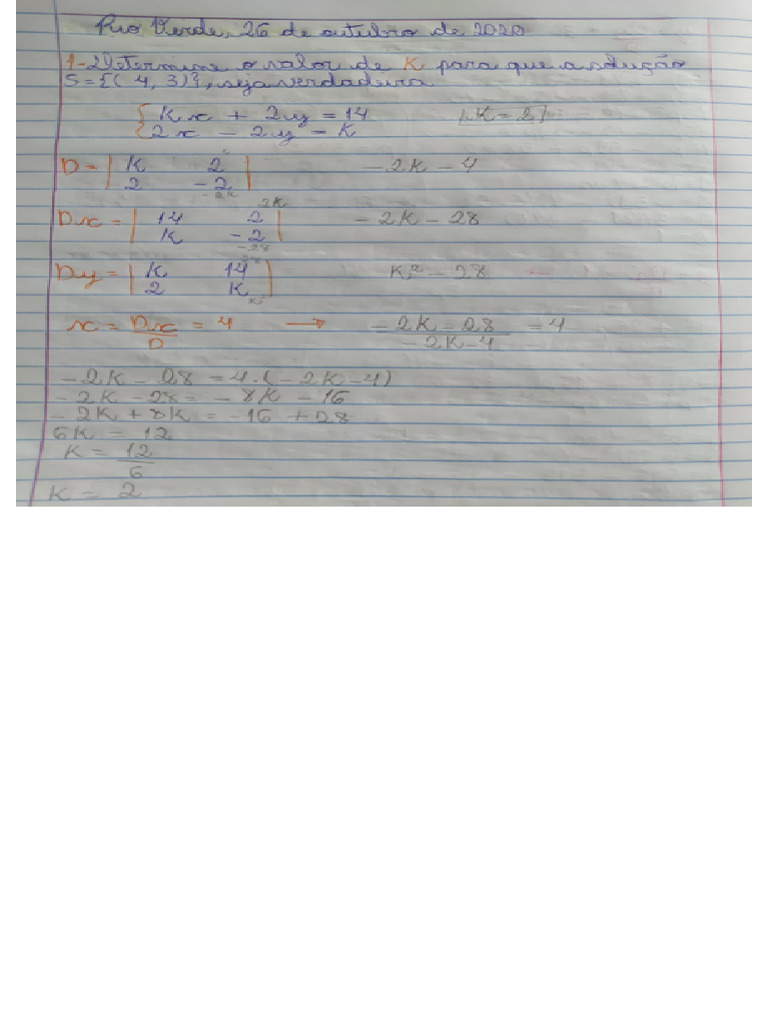 Rio Verde, 26 de outubro de 2020
1- Determine o valor de K para que a solução
S = {( 4, 3)}, seja verdadeira
{ Kx + 2y = 14 K = 2
2x - 2y = K
D = | K 2 | - 2K - 4
2 - 2
Dx = | 14 2 | - 2K - 28
K - 2
Dy = | K 14 | K² - 28
2 K
x = Dx = 4 → - 2K - 28 = 4
D - 2K - 4
- 2K - 28 = 4 . (- 2K - 4)
- 2K - 28 = - 8K - 16
- 2K + 8K = - 16 + 28
6K = 12
K = 12
6
K = 2